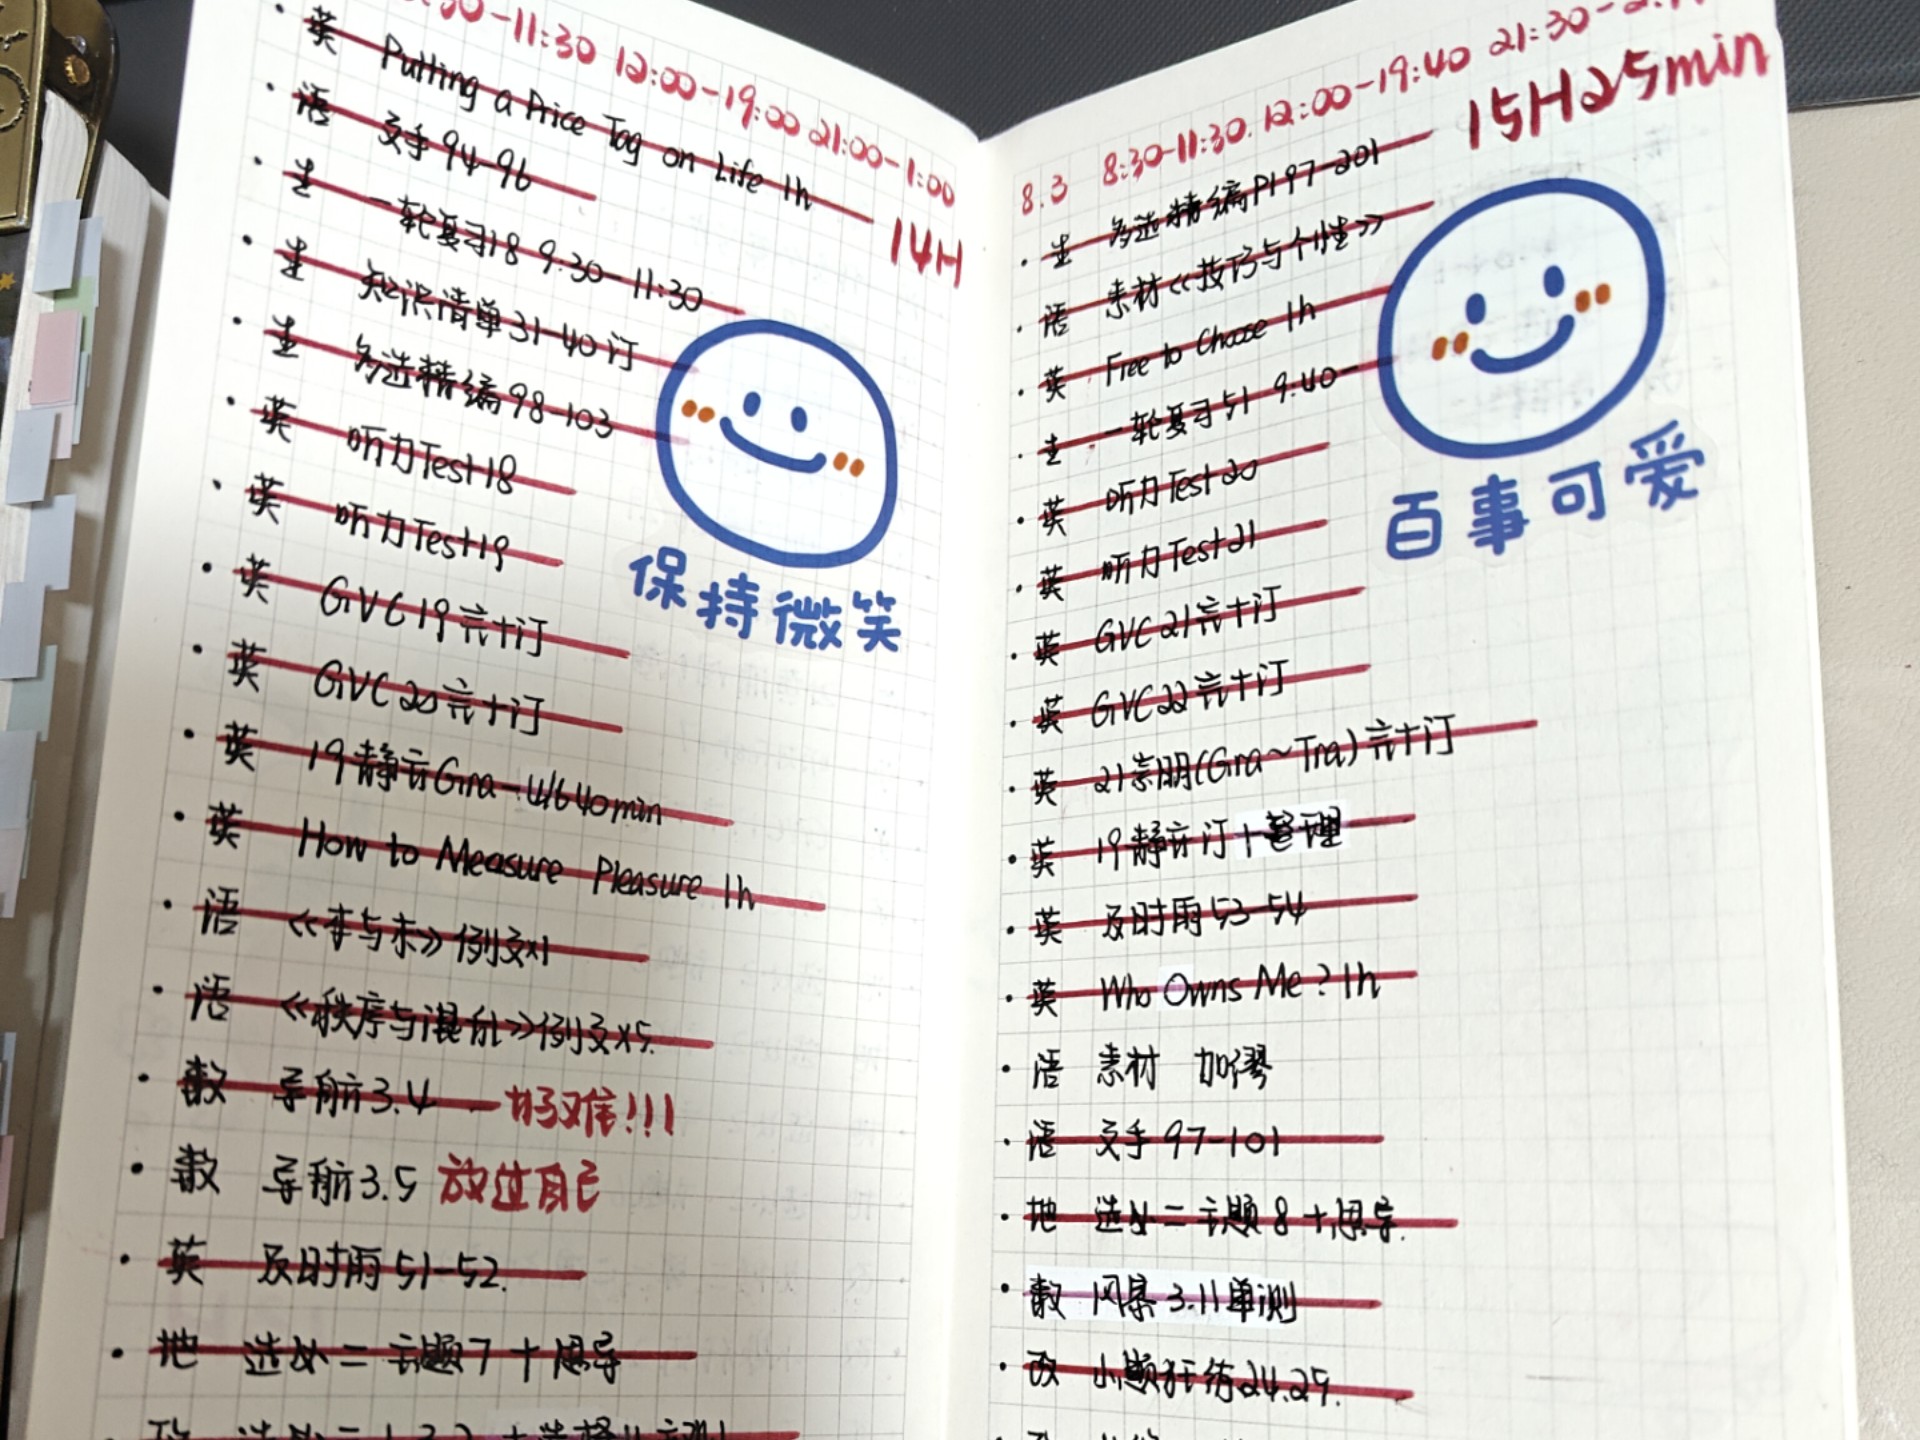 -11:30 12:00-19:00 21:00-1:00
14H
英 Putting a Price Tag on Life 1h
语 文手94-96
生 一轮复习18 9.30-11:30
生 知识清单31-40订
生 多选精编98-103
英 听力Test18
英 听力Test19
英 GVC19完+订
英 GVC20完+订
英 19静安Gra- 40min
英 How to Measure Pleasure 1h
语 《本与末》例文x1
语 《秩序与混乱》例文x5.
数 导航3.4 好难!!!
数 导航3.5 放过自己
英 及时雨51-52.
地 选必二主题7+思导
保持微笑
8.3 8:30-11:30. 12:00-19:40 21:30-
15H25min
生 多选精编P197-201
语 素材《技巧与个性》
英 Free to Choose 1h
生 一轮复习51 9.40-
英 听力Test20
英 听力Test21
英 GVC21完+订
英 GVC22完+订
英 21崇明(Gra~Tra)完+订
英 19静安订+整理
英 及时雨53-54
英 Who Owns Me? 1h
语 素材 加缪
语 文手97-101
地 选必二主题8+思导.
数 风暴3.11单测
政 小题狂练24.25.
百事可爱